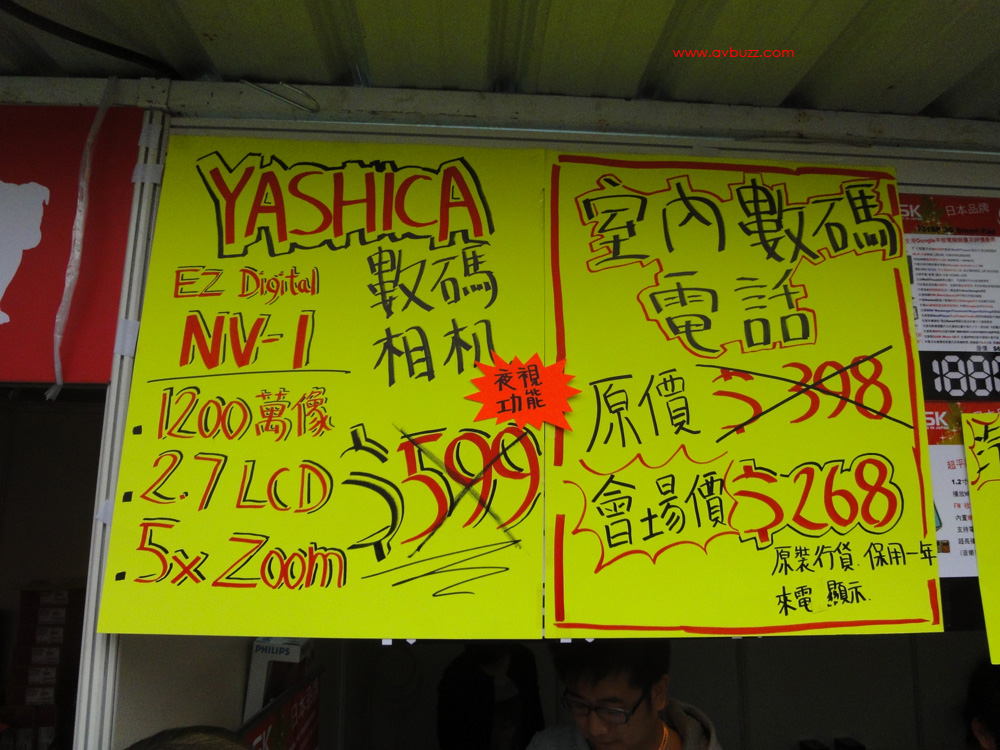 www.avbuzz.com
YASHICA
EZ Digital
數碼
NV-1
相机
1200萬像
2.7 LCD
$599
5x Zoom
夜視
功能
室內數碼
電話
原價 $398
會場價 $268
原裝行貨 保用一年
來電 顯示
SK 日本品牌
1888
SK
PHILIPS